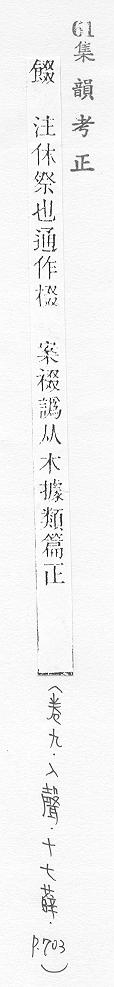 61
集韻考正
餟 注休祭也通作棳 案裰譌从木據類篇正
(卷九.入聲.十七薛.
p.703)